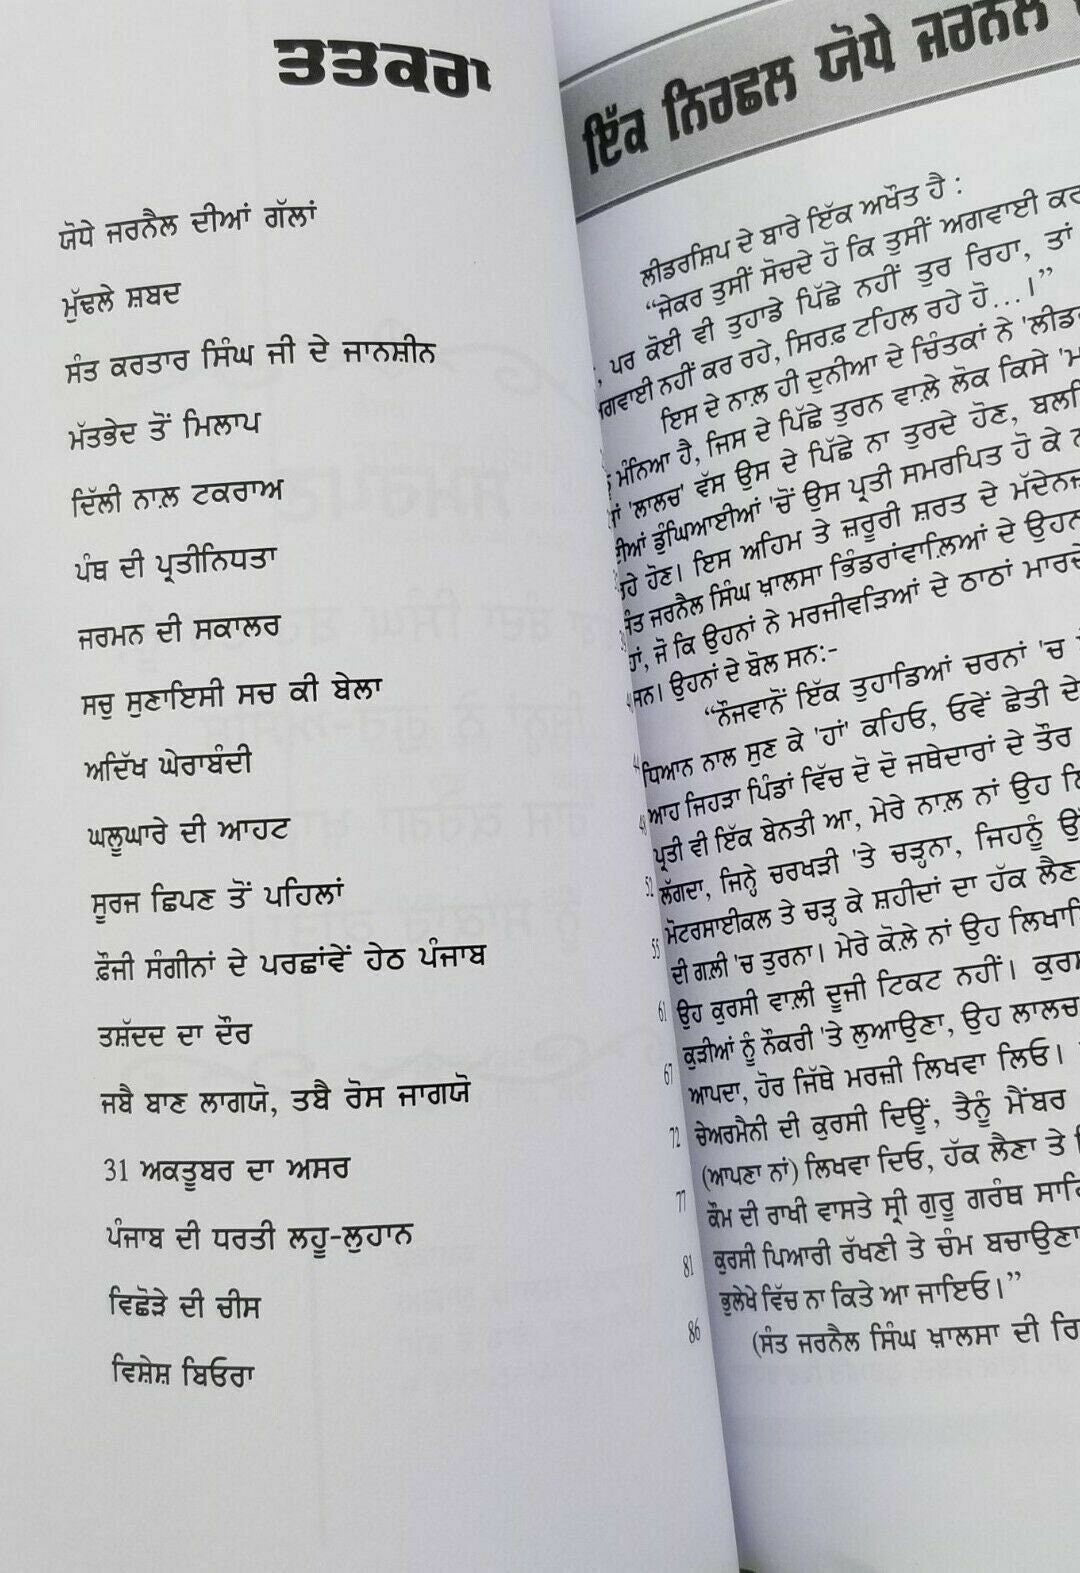 ਤਤਕਰਾ
ਯੋਧੇ ਜਰਨੈਲ ਦੀਆਂ ਗੱਲਾਂ
ਮੁੱਢਲੇ ਸ਼ਬਦ
ਸੰਤ ਕਰਤਾਰ ਸਿੰਘ ਜੀ ਦੇ ਜਾਨਸ਼ੀਨ
ਮੱਤਭੇਦ ਤੋਂ ਮਿਲਾਪ
ਦਿੱਲੀ ਨਾਲ਼ ਟਕਰਾਅ
ਪੰਥ ਦੀ ਪ੍ਰਤੀਨਿਧਤਾ
ਜਰਮਨ ਦੀ ਸਕਾਲਰ
ਸਚੁ ਸੁਣਾਇਸੀ ਸਚ ਕੀ ਬੇਲਾ
ਅਦਿੱਖ ਘੇਰਾਬੰਦੀ
ਘਲੂਘਾਰੇ ਦੀ ਆਹਟ
ਸੂਰਜ ਛਿਪਣ ਤੋਂ ਪਹਿਲਾਂ
ਫ਼ੌਜੀ ਸੰਗੀਨਾਂ ਦੇ ਪਰਛਾਂਵੇਂ ਹੇਠ ਪੰਜਾਬ
ਤਸ਼ੱਦਦ ਦਾ ਦੌਰ
ਜਬੈ ਬਾਣ ਲਾਗਯੋ, ਤਬੈ ਰੋਸ ਜਾਗਯੋ
31 ਅਕਤੂਬਰ ਦਾ ਅਸਰ
ਪੰਜਾਬ ਦੀ ਧਰਤੀ ਲਹੂ-ਲੁਹਾਨ
ਵਿਛੋੜੇ ਦੀ ਚੀਸ
ਵਿਸ਼ੇਸ਼ ਬਿਓਰਾ
52
55
61
67
72
77
81
86
ਇੱਕ ਨਿਰਛਲ ਯੋਧੇ ਜਰਨੈਲ
ਲੀਡਰਸ਼ਿਪ ਦੇ ਬਾਰੇ ਇੱਕ ਅਖੌਤ ਹੈ :
“ਜੇਕਰ ਤੁਸੀਂ ਸੋਚਦੇ ਹੋ ਕਿ ਤੁਸੀਂ ਅਗਵਾਈ ਕਰ
, ਪਰ ਕੋਈ ਵੀ ਤੁਹਾਡੇ ਪਿੱਛੇ ਨਹੀਂ ਤੁਰ ਰਿਹਾ, ਤਾਂ
ਅਗਵਾਈ ਨਹੀਂ ਕਰ ਰਹੇ, ਸਿਰਫ਼ ਟਹਿਲ ਰਹੇ ਹੋ...।”
ਇਸ ਦੇ ਨਾਲ਼ ਹੀ ਦੁਨੀਆ ਦੇ ਚਿੰਤਕਾਂ ਨੇ 'ਲੀਡਰ
ਮੰਨਿਆ ਹੈ, ਜਿਸ ਦੇ ਪਿੱਛੇ ਤੁਰਨ ਵਾਲ਼ੇ ਲੋਕ ਕਿਸੇ
'ਲਾਲਚ' ਵੱਸ ਉਸ ਦੇ ਪਿੱਛੇ ਨਾ ਤੁਰਦੇ ਹੋਣ,
ਡੂੰਘਿਆਈਆਂ 'ਚੋਂ ਉਸ ਪ੍ਰਤੀ ਸਮਰਪਿਤ ਹੋ ਕੇ
ਹੋਣ। ਇਸ ਅਹਿਮ ਤੇ ਜ਼ਰੂਰੀ ਸ਼ਰਤ ਦੇ ਮੱਦੇਨਜ਼
ਜਰਨੈਲ ਸਿੰਘ ਖ਼ਾਲਸਾ ਭਿੰਡਰਾਂਵਾਲ਼ਿਆਂ ਦੇ ਉਹਨਾ
ਜੋ ਕਿ ਉਹਨਾਂ ਨੇ ਮਰਜੀਵੜਿਆਂ ਦੇ ਠਾਠਾਂ ਮਾਰਦੇ
ਸਨ। ਉਹਨਾਂ ਦੇ ਬੋਲ ਸਨ:-
“ਨੌਜਵਾਨੋਂ ਇੱਕ ਤੁਹਾਡਿਆਂ ਚਰਨਾਂ 'ਚ
ਧਿਆਨ ਨਾਲ ਸੁਣ ਕੇ 'ਹਾਂ' ਕਹਿਓ, ਓਵੇਂ ਛੇਤੀ ਦੇ
ਆਹ ਜਿਹੜਾ ਪਿੰਡਾਂ ਵਿੱਚ ਦੋ ਦੋ ਜਥੇਦਾਰਾਂ ਦੇ ਤੌਰ
ਪ੍ਰਤੀ ਵੀ ਇੱਕ ਬੇਨਤੀ ਆ, ਮੇਰੇ ਨਾਲ਼ ਨਾਂ ਉਹ
ਲੱਗਦਾ, ਜਿਨ੍ਹੇ ਚਰਖੜੀ 'ਤੇ ਚੜ੍ਹਨਾ, ਜਿਹਨੂੰ
ਮੋਟਰਸਾਈਕਲ ਤੇ ਚੜ੍ਹ ਕੇ ਸ਼ਹੀਦਾਂ ਦਾ ਹੱਕ ਲੈਣ
ਦੀ ਗਲ਼ੀ 'ਚ ਤੁਰਨਾ। ਮੇਰੇ ਕੋਲ਼ੇ ਨਾਂ ਉਹ ਲਿਖਾ
ਉਹ ਕੁਰਸੀ ਵਾਲ਼ੀ ਦੂਜੀ ਟਿਕਟ ਨਹੀਂ। ਕੁਰਸ
ਕੁੜੀਆਂ ਨੂੰ ਨੌਕਰੀ 'ਤੇ ਲੁਆਉਣਾ, ਉਹ ਲਾਲਚ
ਆਪਦਾ, ਹੋਰ ਜਿੱਥੇ ਮਰਜ਼ੀ ਲਿਖਵਾ ਲਿਓ।
ਚੇਅਰਮੈਨੀ ਦੀ ਕੁਰਸੀ ਦਿਊਂ, ਤੈਨੂੰ ਮੈਂਬਰ
(ਆਪਣਾ ਨਾਂ) ਲਿਖਵਾ ਦਿਓ, ਹੱਕ ਲੈਣਾ ਤੇ
ਕੌਮ ਦੀ ਰਾਖੀ ਵਾਸਤੇ ਸ੍ਰੀ ਗੁਰੂ ਗਰੰਥ ਸਾਹਿ
ਕੁਰਸੀ ਪਿਆਰੀ ਰੱਖਣੀ ਤੇ ਚੰਮ ਬਚਾਉਣਾ
ਭੁਲੇਖੇ ਵਿੱਚ ਨਾ ਕਿਤੇ ਆ ਜਾਇਓ।”
(ਸੰਤ ਜਰਨੈਲ ਸਿੰਘ ਖ਼ਾਲਸਾ ਦੀ ਰਿ